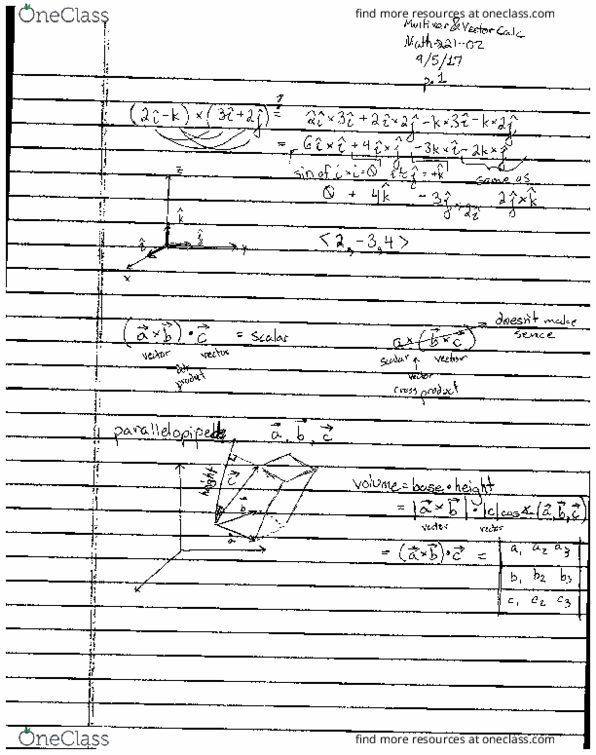 OneClass
find more resources at oneclass.com
Multivar & Vector Calc
Math-221-02
9/5/17
p.1
(2î-k) × (3î+2ĵ) ?= 2î×3î + 2î×2ĵ - k×3î - k×2ĵ
= 6î×î + 4î×ĵ - 3k×î - 2k×ĵ
sin of i×i=0 i×ĵ=+k̂ same as
0 + 4k̂ - 3ĵ + 2î 2ĵ×k̂
z
k̂
î ĵ y
x
<2,-3,4>
(a⃗×b⃗)·c⃗ = scalar
vector vector
dot
product
a×(b⃗×c⃗) doesn't make
sence
scalar vector
vector
cross product
parallelopiped a⃗, b⃗, c⃗
height c⃗ b⃗ a⃗
volume = base·height
= |a⃗×b⃗|·|c|cos∡(a⃗,b⃗,c⃗)
vector vector
= (a⃗×b⃗)·c⃗ = | a₁ a₂ a₃ |
| b₁ b₂ b₃ |
| c₁ c₂ c₃ |
OneClass
find more resources at oneclass.com